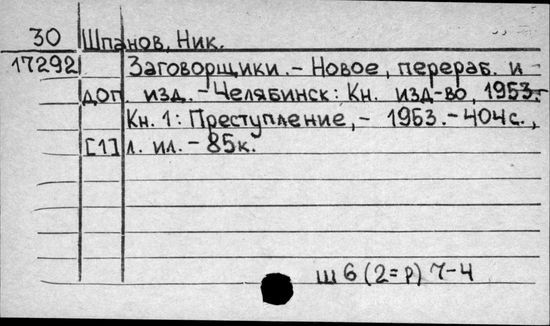 30 Шпанов, Ник.
17292 Заговорщики. - Новое, перераб. и
доп. изд. - Челябинск: Кн. изд-во, 1953.
Кн. 1: Преступление, - 1953. - 404с.,
[1] л. ил. - 85к.
Ш6(2=Р)7-4